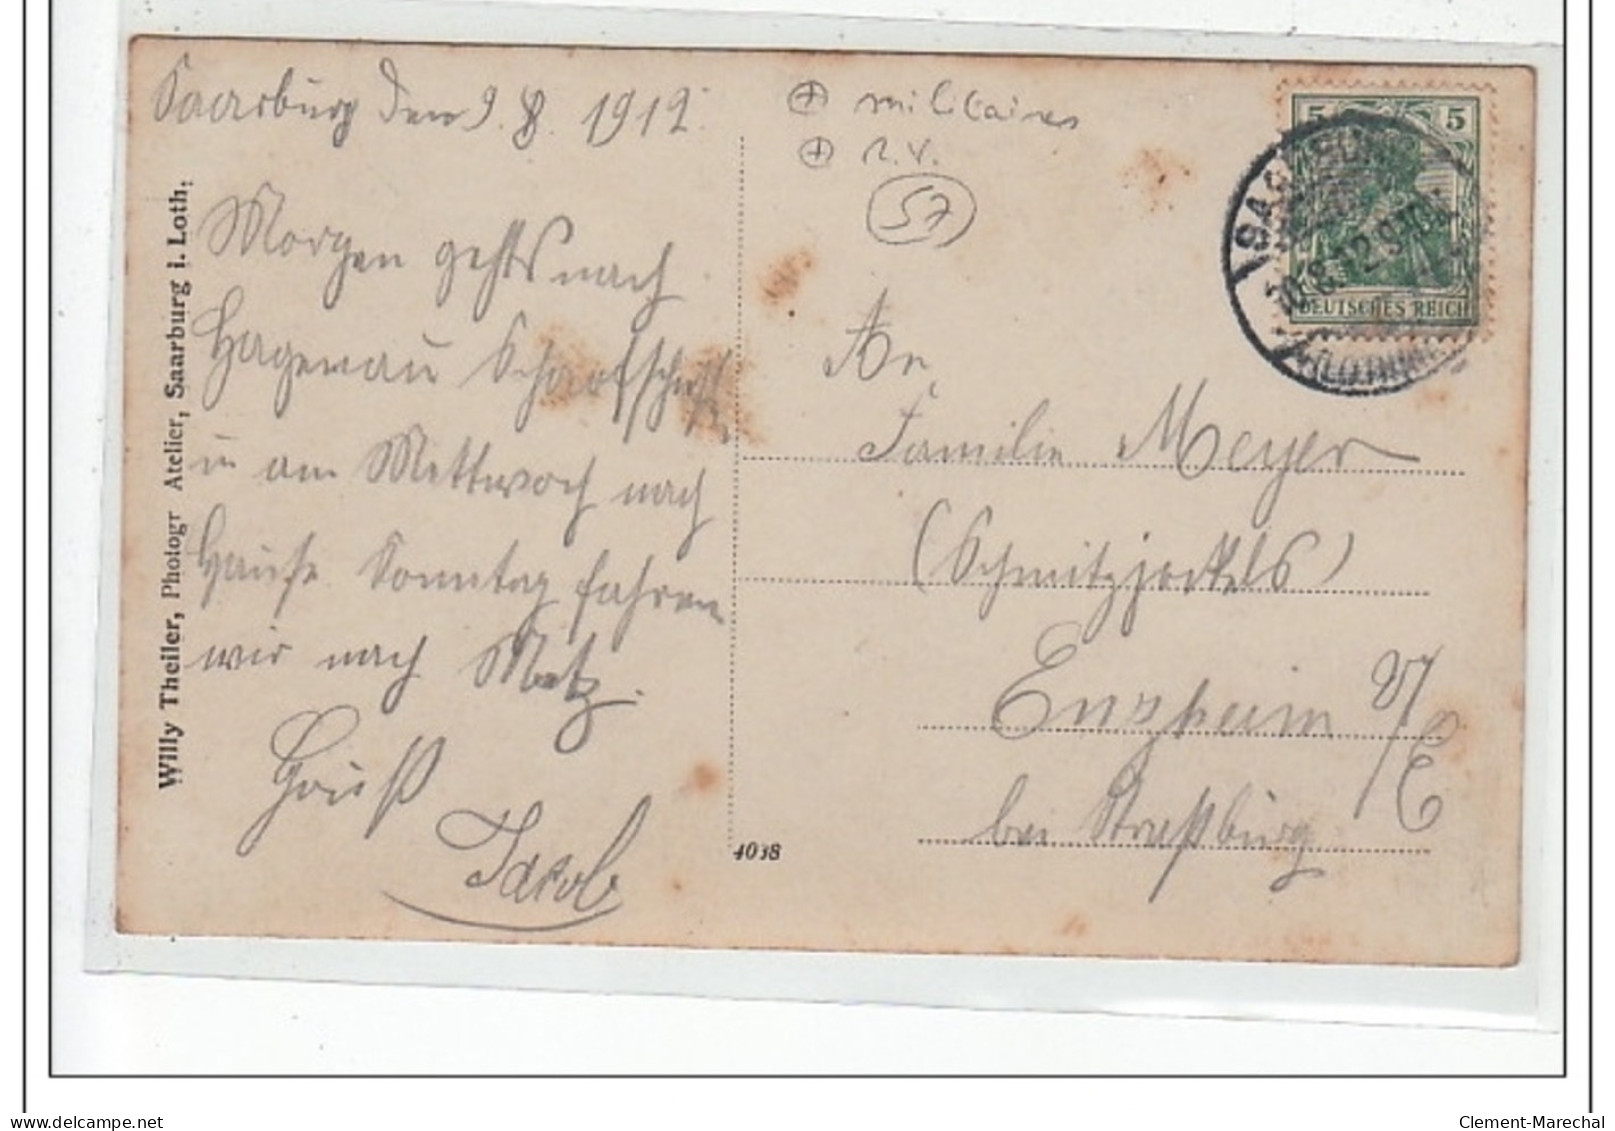 Saarburg den 9. 8. 1912.
Morgen gehts nach
Hagenau Scharfschieß
u am Mettwoch nach
Hause Sonntag fahren
wir nach Metz.
Gruß
Jakob
Willy Theiler, Photogr Atelier, Saarburg i. Loth.
4038
+ militaires
+ R.V.
57
5 5
DEUTSCHES REICH
SAARBURG
10.8.12.9-10V.
(LOTHR.)
An
Familie Meyer
(Schmitzjockels)
Enzheim U/E
bei Straßburg
willy
Clement-Marechal